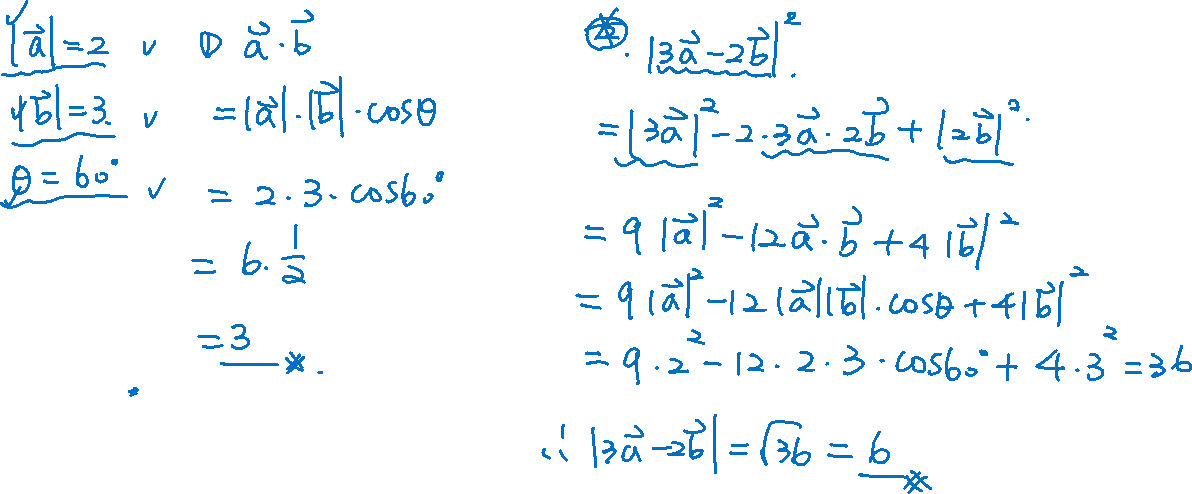 |a⃗| = 2 ✓
|b⃗| = 3. ✓
θ = 60° ✓
① a⃗ · b⃗
= |a⃗| · |b⃗| · cosθ
= 2 · 3 · cos60°
= 6 · 1/2
= 3 ※.
② . |3a⃗ − 2b⃗|².
= |3a⃗|² − 2 · 3a⃗ · 2b⃗ + |2b⃗|².
= 9|a⃗|² − 12a⃗ · b⃗ + 4|b⃗|²
= 9|a⃗|² − 12|a⃗||b⃗| · cosθ + 4|b⃗|²
= 9 · 2² − 12 · 2 · 3 · cos60° + 4 · 3² = 36
∴ |3a⃗ − 2b⃗| = √36 = 6 ※